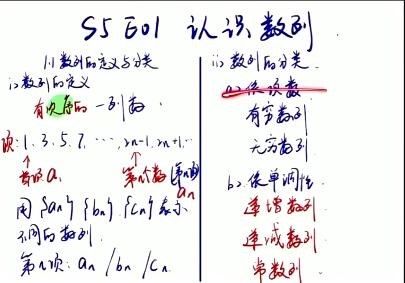 S5 E01 认识数列
1.1 数列的定义与分类
i> 数列的定义
有次序的一列数
项: 1, 3, 5, 7, ..., 2n-1, 2n+1, ...
首项 a₁ 第n个数 (第n项) aₙ
用 {aₙ} {bₙ} {cₙ} 表示
不同的数列
第n项: aₙ / bₙ / cₙ
ii> 数列的分类
a> 依项数
有穷数列
无穷数列
b> 依单调性
递增数列
递减数列
常数列